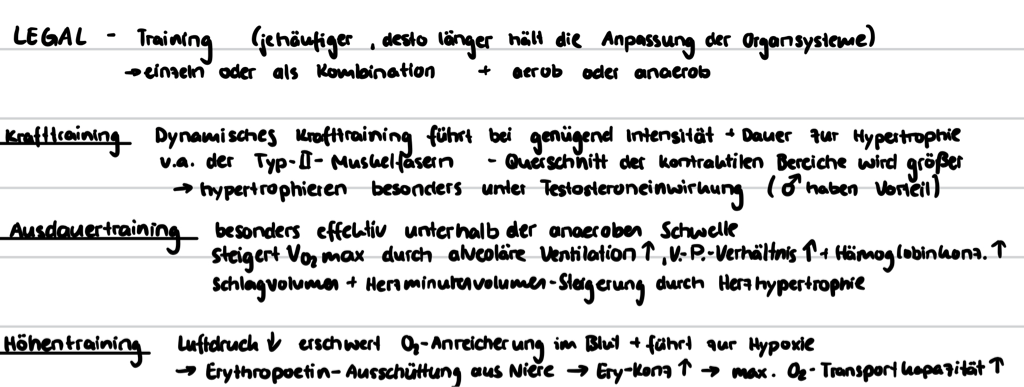 LEGAL - Training (jehäufiger, desto länger hält die Anpassung der Organsysteme)
→ einzeln oder als Kombination + aerob oder anaerob
Krafttraining Dynamisches Krafttraining führt bei genügend Intensität + Dauer zur Hypertrophie
v.a. der Typ-II-Muskelfasern - Querschnitt der kontraktilen Bereiche wird größer
→ hypertrophieren besonders unter Testosteroneinwirkung (♂ haben Vorteil)
Ausdauertraining besonders effektiv unterhalb der anaeroben Schwelle
steigert VO₂ max durch alveoläre Ventilation ↑, V.-P.-Verhältnis ↑ + Hämoglobinkonz. ↑
Schlagvolumen + Herzminutenvolumen-Steigerung durch Herzhypertrophie
Höhentraining Luftdruck ↓ erschwert O₂-Anreicherung im Blut + führt zur Hypoxie
→ Erythropoetin-Ausschüttung aus Niere → Ery-Konz ↑ → max. O₂-Transportkapazität ↑